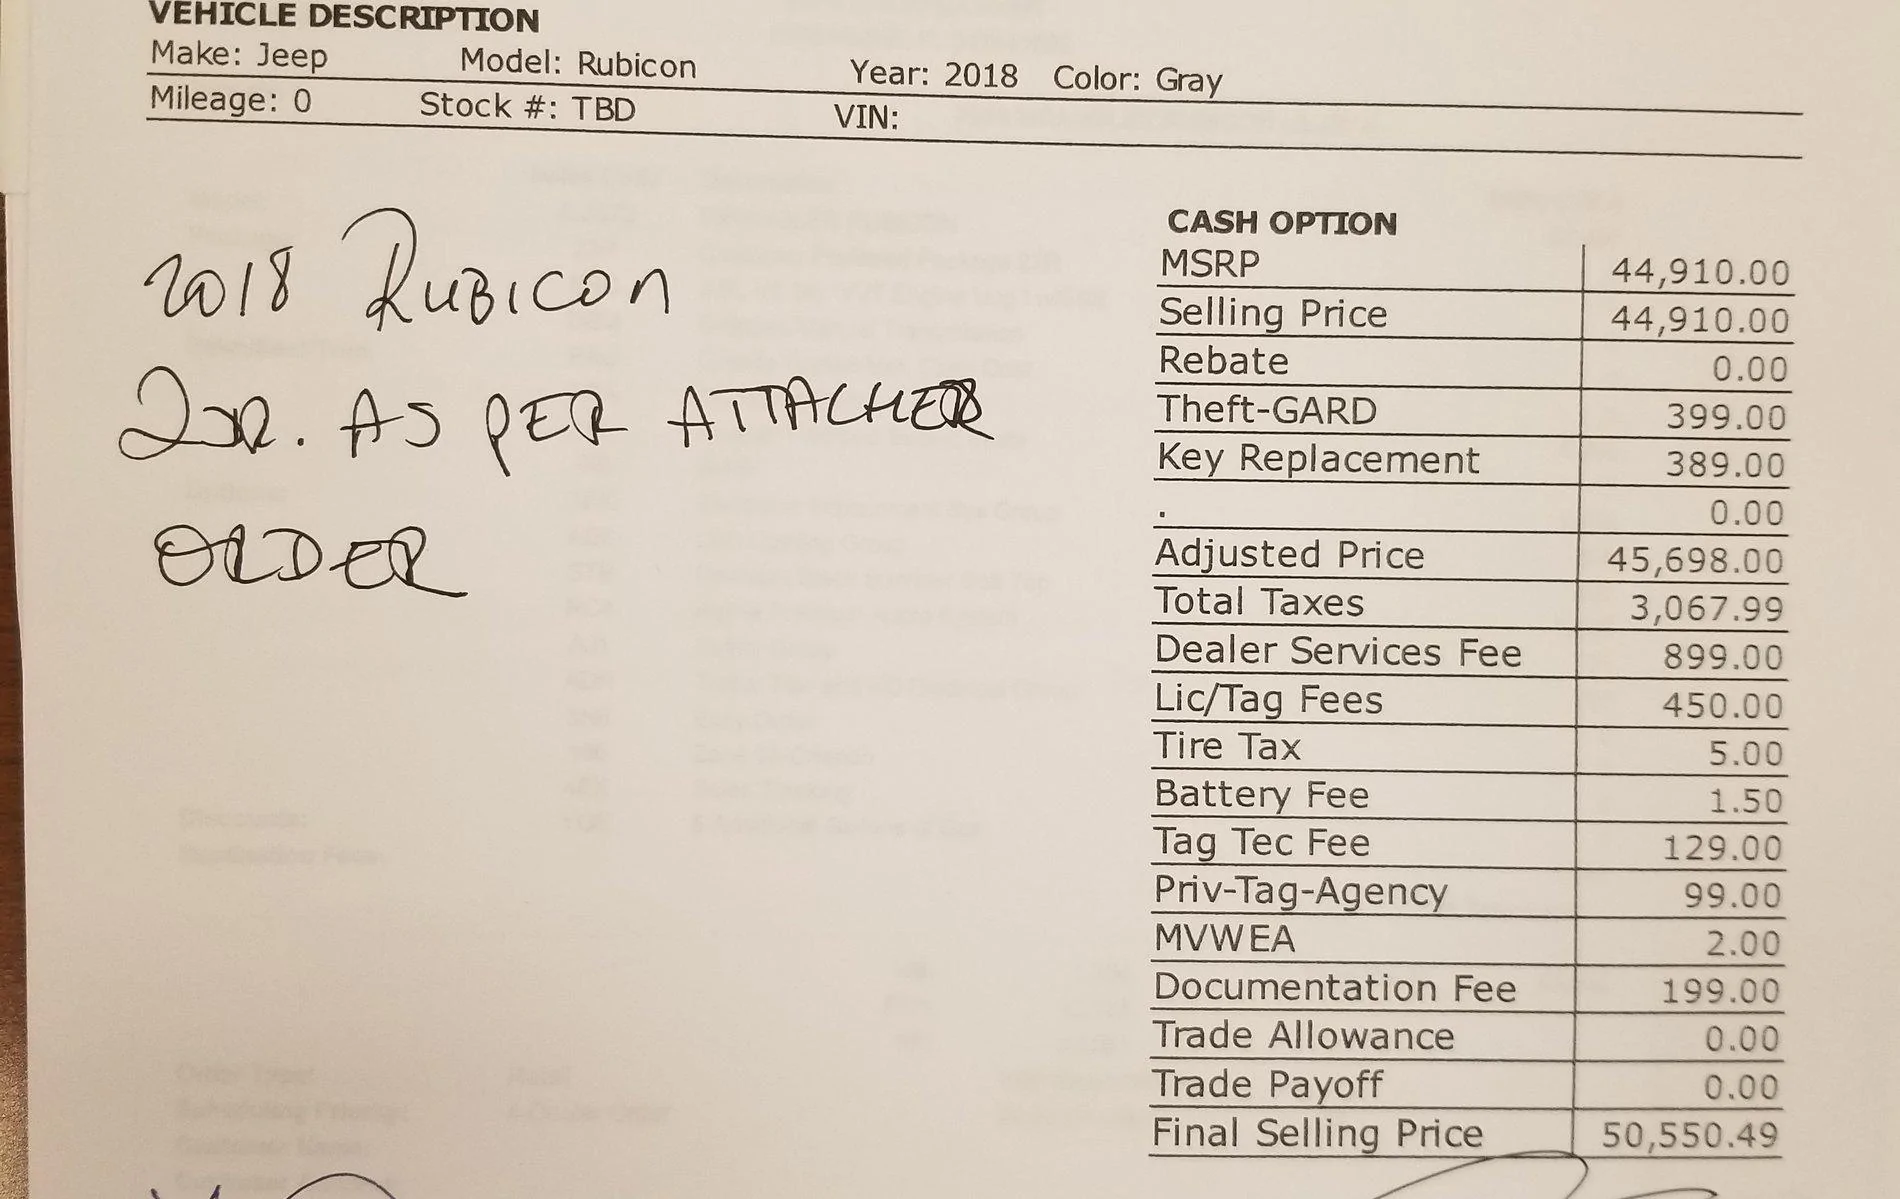 VEHICLE DESCRIPTION
Make: Jeep Model: Rubicon Year: 2018 Color: Gray
Mileage: 0 Stock #: TBD VIN:
2018 RUBICON
2DR. AS PER ATTACHED
ORDER
CASH OPTION
MSRP 44,910.00
Selling Price 44,910.00
Rebate 0.00
Theft-GARD 399.00
Key Replacement 389.00
. 0.00
Adjusted Price 45,698.00
Total Taxes 3,067.99
Dealer Services Fee 899.00
Lic/Tag Fees 450.00
Tire Tax 5.00
Battery Fee 1.50
Tag Tec Fee 129.00
Priv-Tag-Agency 99.00
MVWEA 2.00
Documentation Fee 199.00
Trade Allowance 0.00
Trade Payoff 0.00
Final Selling Price 50,550.49